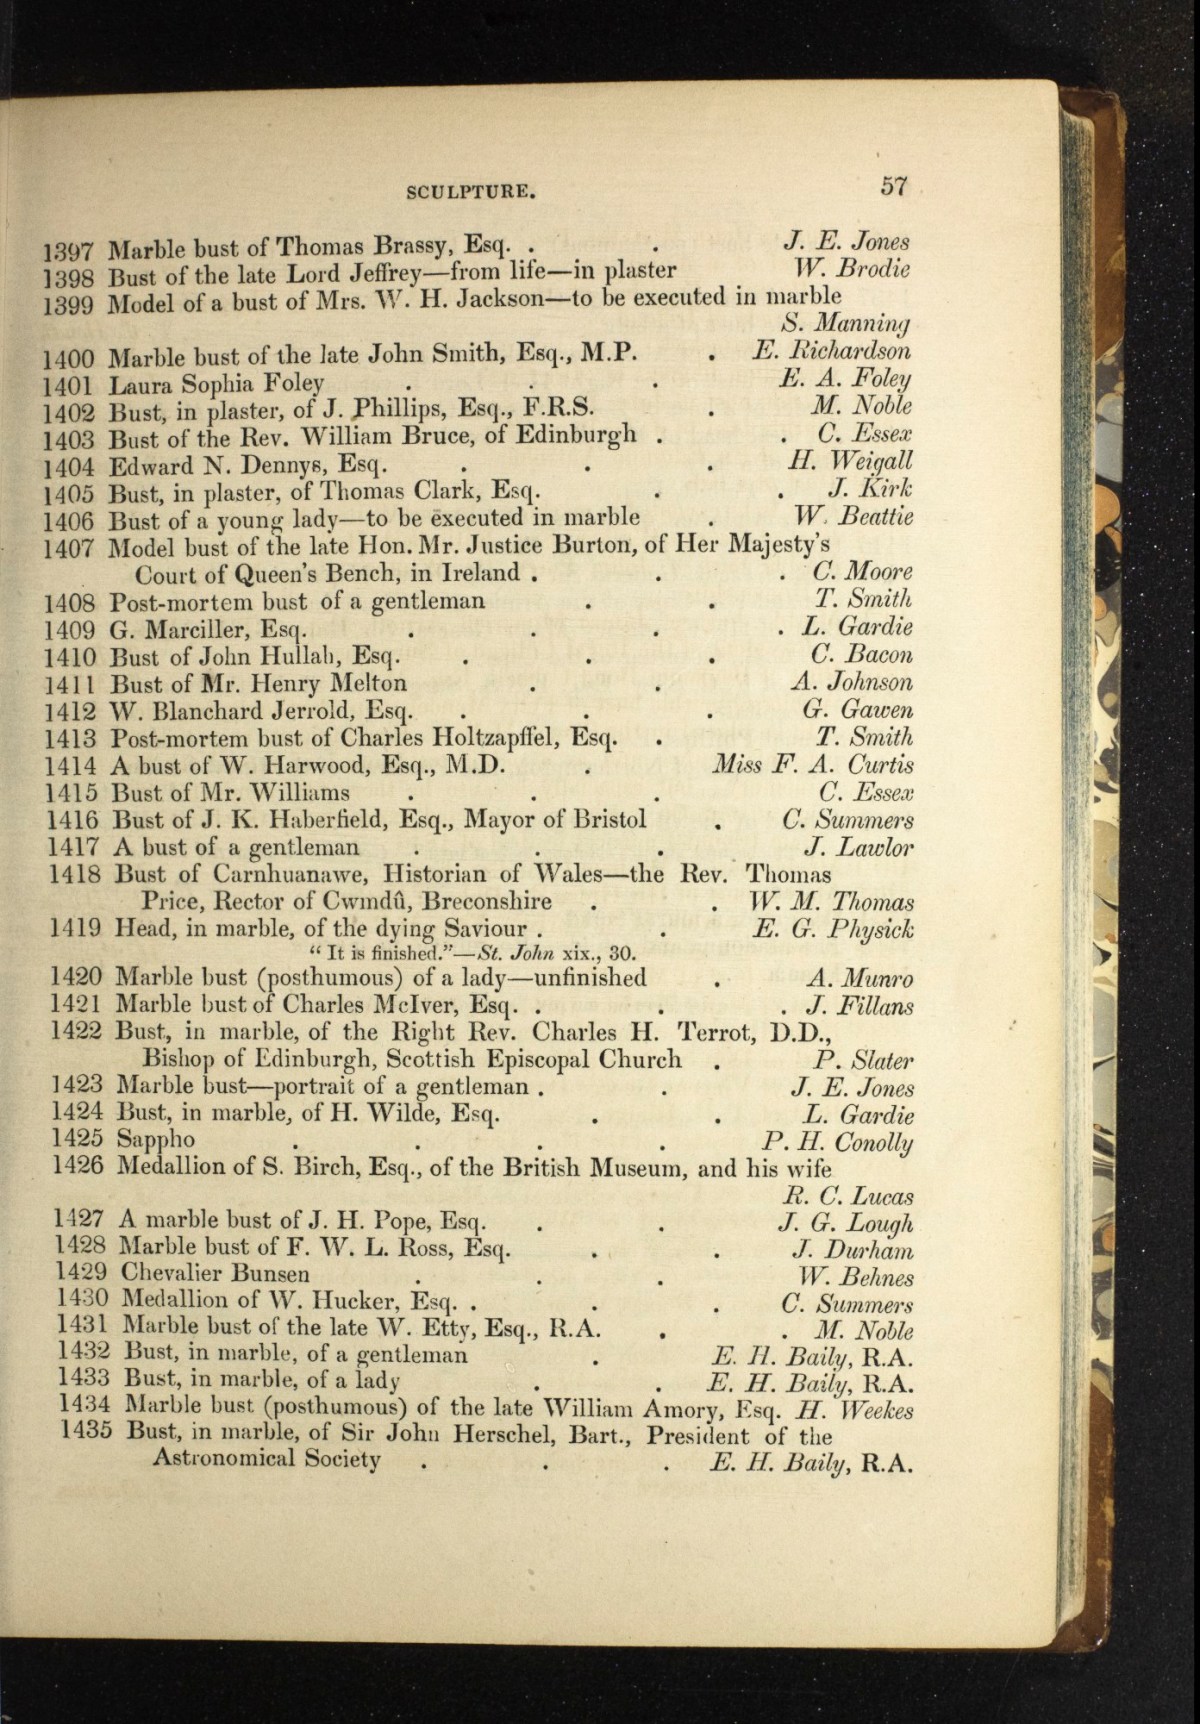 SCULPTURE. 57
1397 Marble bust of Thomas Brassy, Esq. . . J. E. Jones
1398 Bust of the late Lord Jeffrey—from life—in plaster W. Brodie
1399 Model of a bust of Mrs. W. H. Jackson—to be executed in marble
S. Manning
1400 Marble bust of the late John Smith, Esq., M.P. . E. Richardson
1401 Laura Sophia Foley . . . E. A. Foley
1402 Bust, in plaster, of J. Phillips, Esq., F.R.S. . M. Noble
1403 Bust of the Rev. William Bruce, of Edinburgh . . C. Essex
1404 Edward N. Dennys, Esq. . . . H. Weigall
1405 Bust, in plaster, of Thomas Clark, Esq. . . J. Kirk
1406 Bust of a young lady—to be executed in marble . W. Beattie
1407 Model bust of the late Hon. Mr. Justice Burton, of Her Majesty's
Court of Queen's Bench, in Ireland . . . C. Moore
1408 Post-mortem bust of a gentleman . . T. Smith
1409 G. Marciller, Esq. . . . . L. Gardie
1410 Bust of John Hullah, Esq. . . . C. Bacon
1411 Bust of Mr. Henry Melton . . A. Johnson
1412 W. Blanchard Jerrold, Esq. . . . G. Gawen
1413 Post-mortem bust of Charles Holtzapffel, Esq. . T. Smith
1414 A bust of W. Harwood, Esq., M.D. . Miss F. A. Curtis
1415 Bust of Mr. Williams . . . C. Essex
1416 Bust of J. K. Haberfield, Esq., Mayor of Bristol . C. Summers
1417 A bust of a gentleman . . . J. Lawlor
1418 Bust of Carnhuanawe, Historian of Wales—the Rev. Thomas
Price, Rector of Cwmdû, Breconshire . . W. M. Thomas
1419 Head, in marble, of the dying Saviour . . E. G. Physick
“ It is finished.”—St. John xix., 30.
1420 Marble bust (posthumous) of a lady—unfinished . A. Munro
1421 Marble bust of Charles McIver, Esq. . . . J. Fillans
1422 Bust, in marble, of the Right Rev. Charles H. Terrot, D.D.,
Bishop of Edinburgh, Scottish Episcopal Church . P. Slater
1423 Marble bust—portrait of a gentleman . . J. E. Jones
1424 Bust, in marble, of H. Wilde, Esq. . . L. Gardie
1425 Sappho . . . . P. H. Conolly
1426 Medallion of S. Birch, Esq., of the British Museum, and his wife
R. C. Lucas
1427 A marble bust of J. H. Pope, Esq. . . J. G. Lough
1428 Marble bust of F. W. L. Ross, Esq. . . J. Durham
1429 Chevalier Bunsen . . . W. Behnes
1430 Medallion of W. Hucker, Esq. . . . C. Summers
1431 Marble bust of the late W. Etty, Esq., R.A. . . M. Noble
1432 Bust, in marble, of a gentleman . E. H. Baily, R.A.
1433 Bust, in marble, of a lady . . E. H. Baily, R.A.
1434 Marble bust (posthumous) of the late William Amory, Esq. H. Weekes
1435 Bust, in marble, of Sir John Herschel, Bart., President of the
Astronomical Society . . . E. H. Baily, R.A.